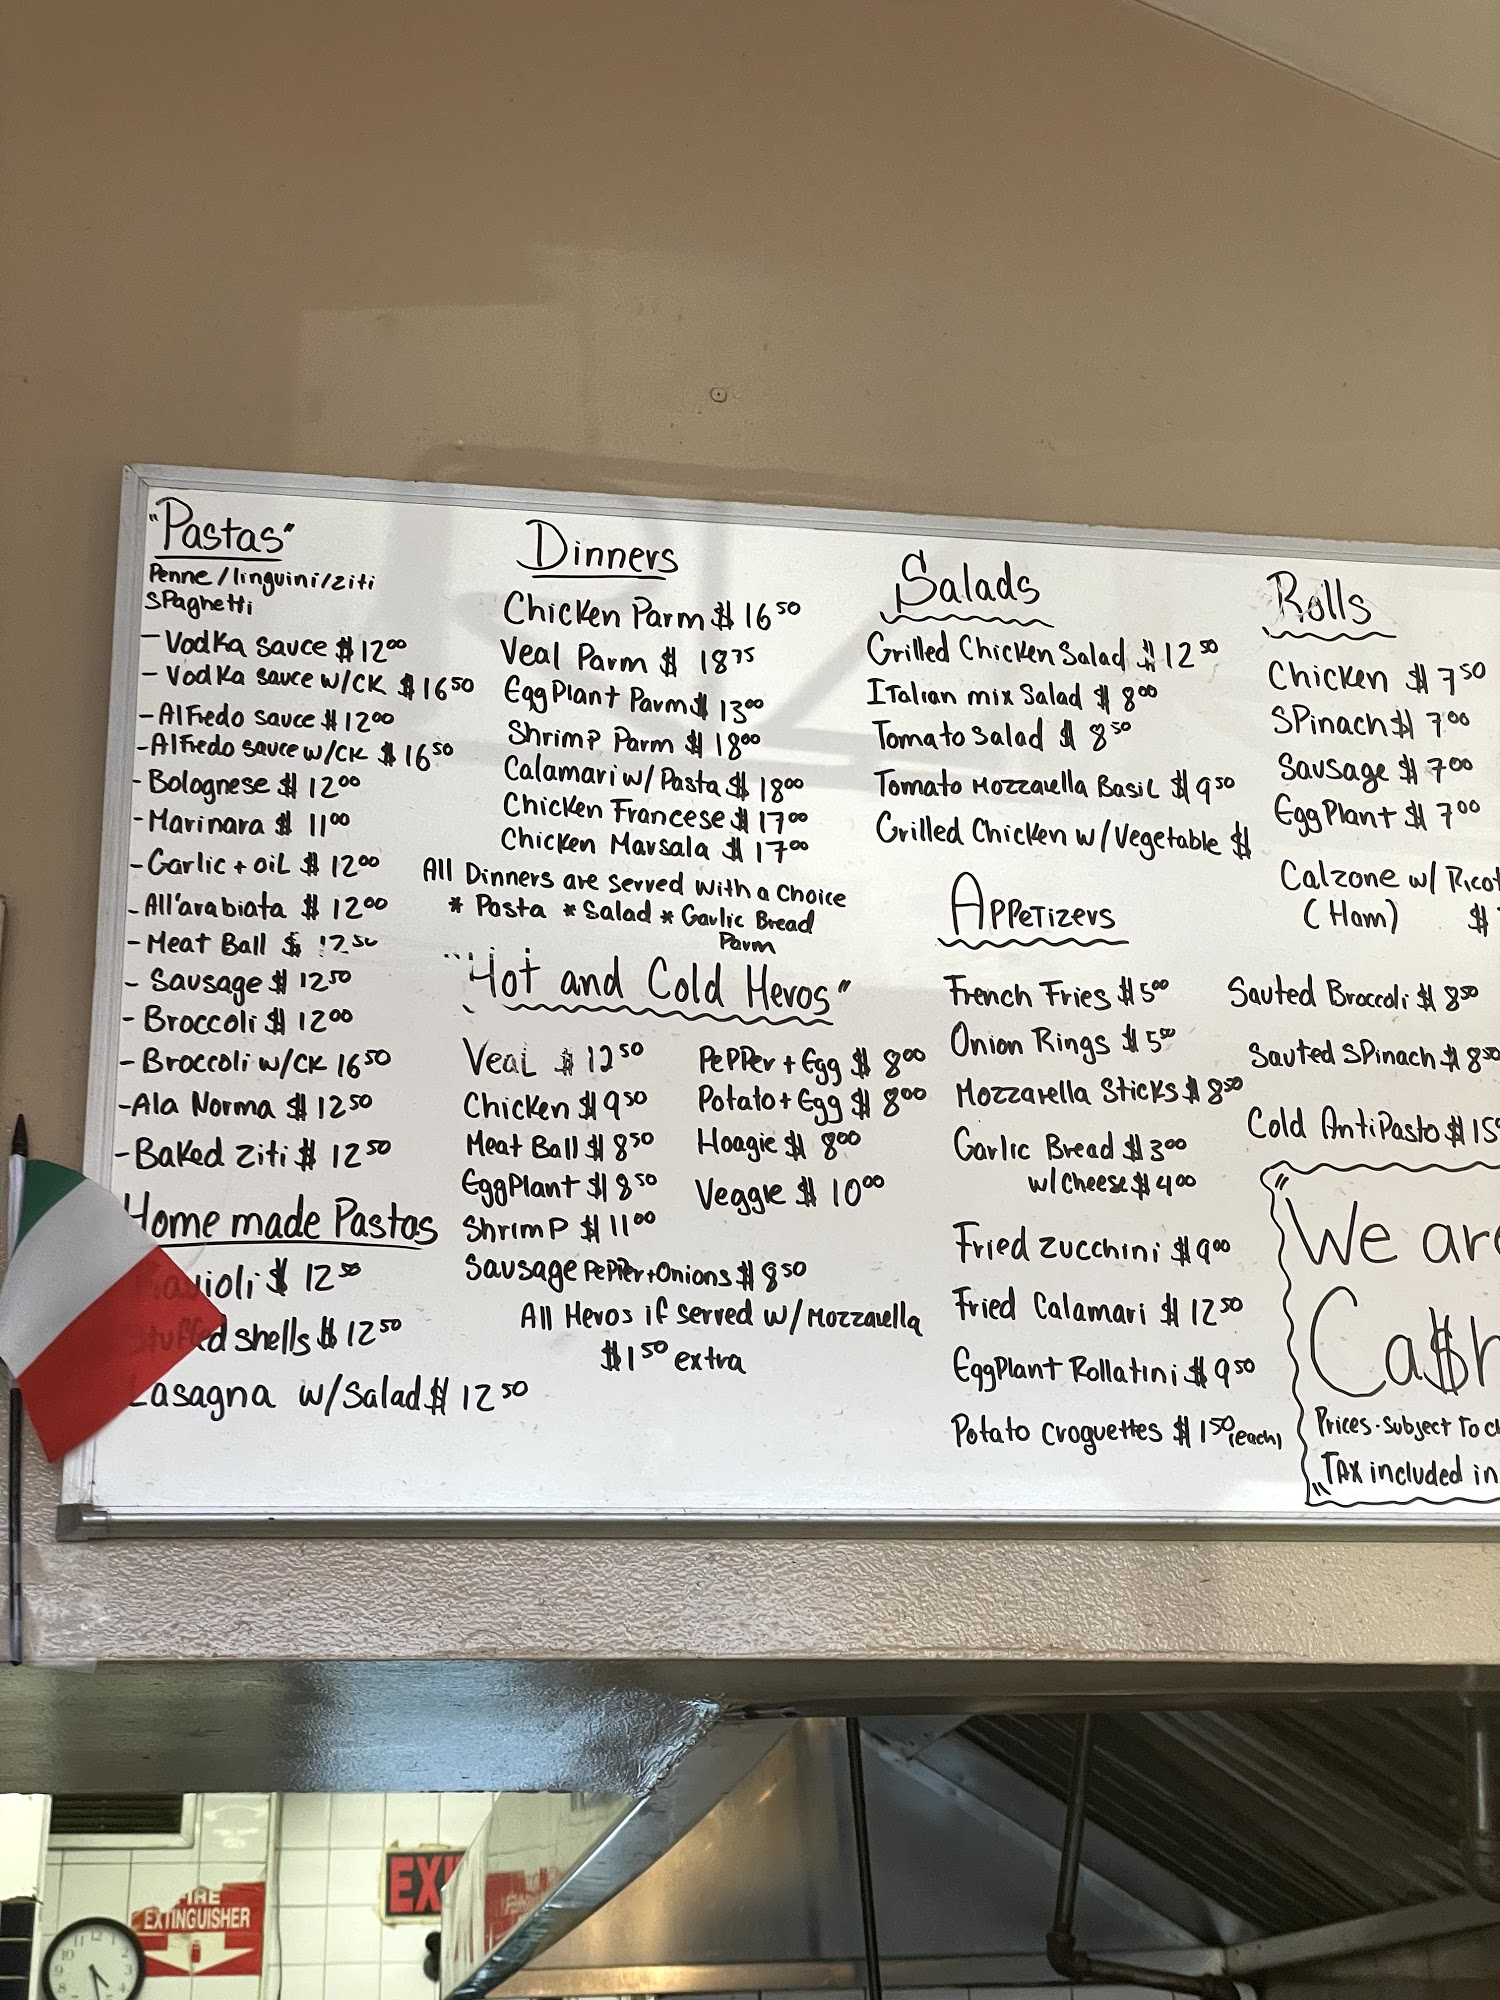 "Pastas"
Penne/linguini/ziti
SPaghetti
- Vodka sauce $12.00
- Vodka sauce w/CK $16.50
- Alfredo sauce $12.00
- Alfredo sauce w/CK $16.50
- Bolognese $12.00
- Marinara $11.00
- Garlic + oil $12.00
- All'arabiata $12.00
- Meat Ball $12.50
- Sausage $12.50
- Broccoli $12.00
- Broccoli w/CK 16.50
- Ala Norma $12.50
- Baked ziti $12.50
Home made Pastas
Ravioli $12.50
Stuffed shells $12.50
Lasagna w/Salad $12.50
Dinners
Chicken Parm $16.50
Veal Parm $18.75
EggPlant Parm $13.00
Shrimp Parm $18.00
Calamari w/Pasta $18.00
Chicken Francese $17.00
Chicken Marsala $17.00
All Dinners are served with a choice
* Pasta * Salad * Garlic Bread
Parm
"Hot and Cold Heros"
Veal $12.50
Chicken $9.50
Meat Ball $8.50
EggPlant $8.50
Shrimp $11.00
Sausage PePPer+Onions $8.50
PePPer + Egg $8.00
Potato + Egg $8.00
Hoagie $8.00
Veggie $10.00
All Heros if served w/Mozzarella
$1.50 extra
Salads
Grilled Chicken Salad $12.50
Italian mix Salad $8.00
Tomato Salad $8.50
Tomato Mozzarella Basil $9.50
Grilled Chicken w/Vegetable $
APPetizers
French Fries $5.00
Onion Rings $5.00
Mozzarella Sticks $8.50
Garlic Bread $3.00
w/cheese $4.00
Fried zucchini $9.00
Fried Calamari $12.50
EggPlant Rollatini $9.50
Potato croquettes $1.50 (each)
Rolls
Chicken $7.50
SPinach $7.00
Sausage $7.00
EggPlant $7.00
Calzone w/Ricot
(Ham) $
Sauted Broccoli $8.50
Sauted SPinach $8.50
Cold AntiPasto $15
"We are
Ca$h
Prices subject to c
"TAX included in
FIRE
EXTINGUISHER
EXI